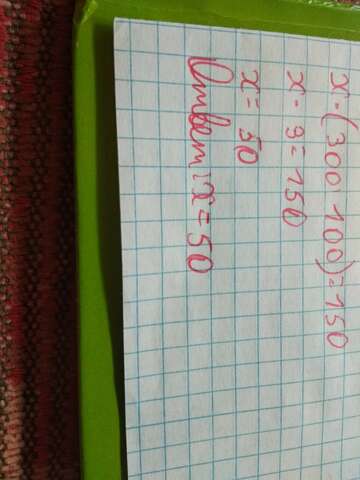 x·(300:100)=150
x·3=150
x=50
Ответ: x=50